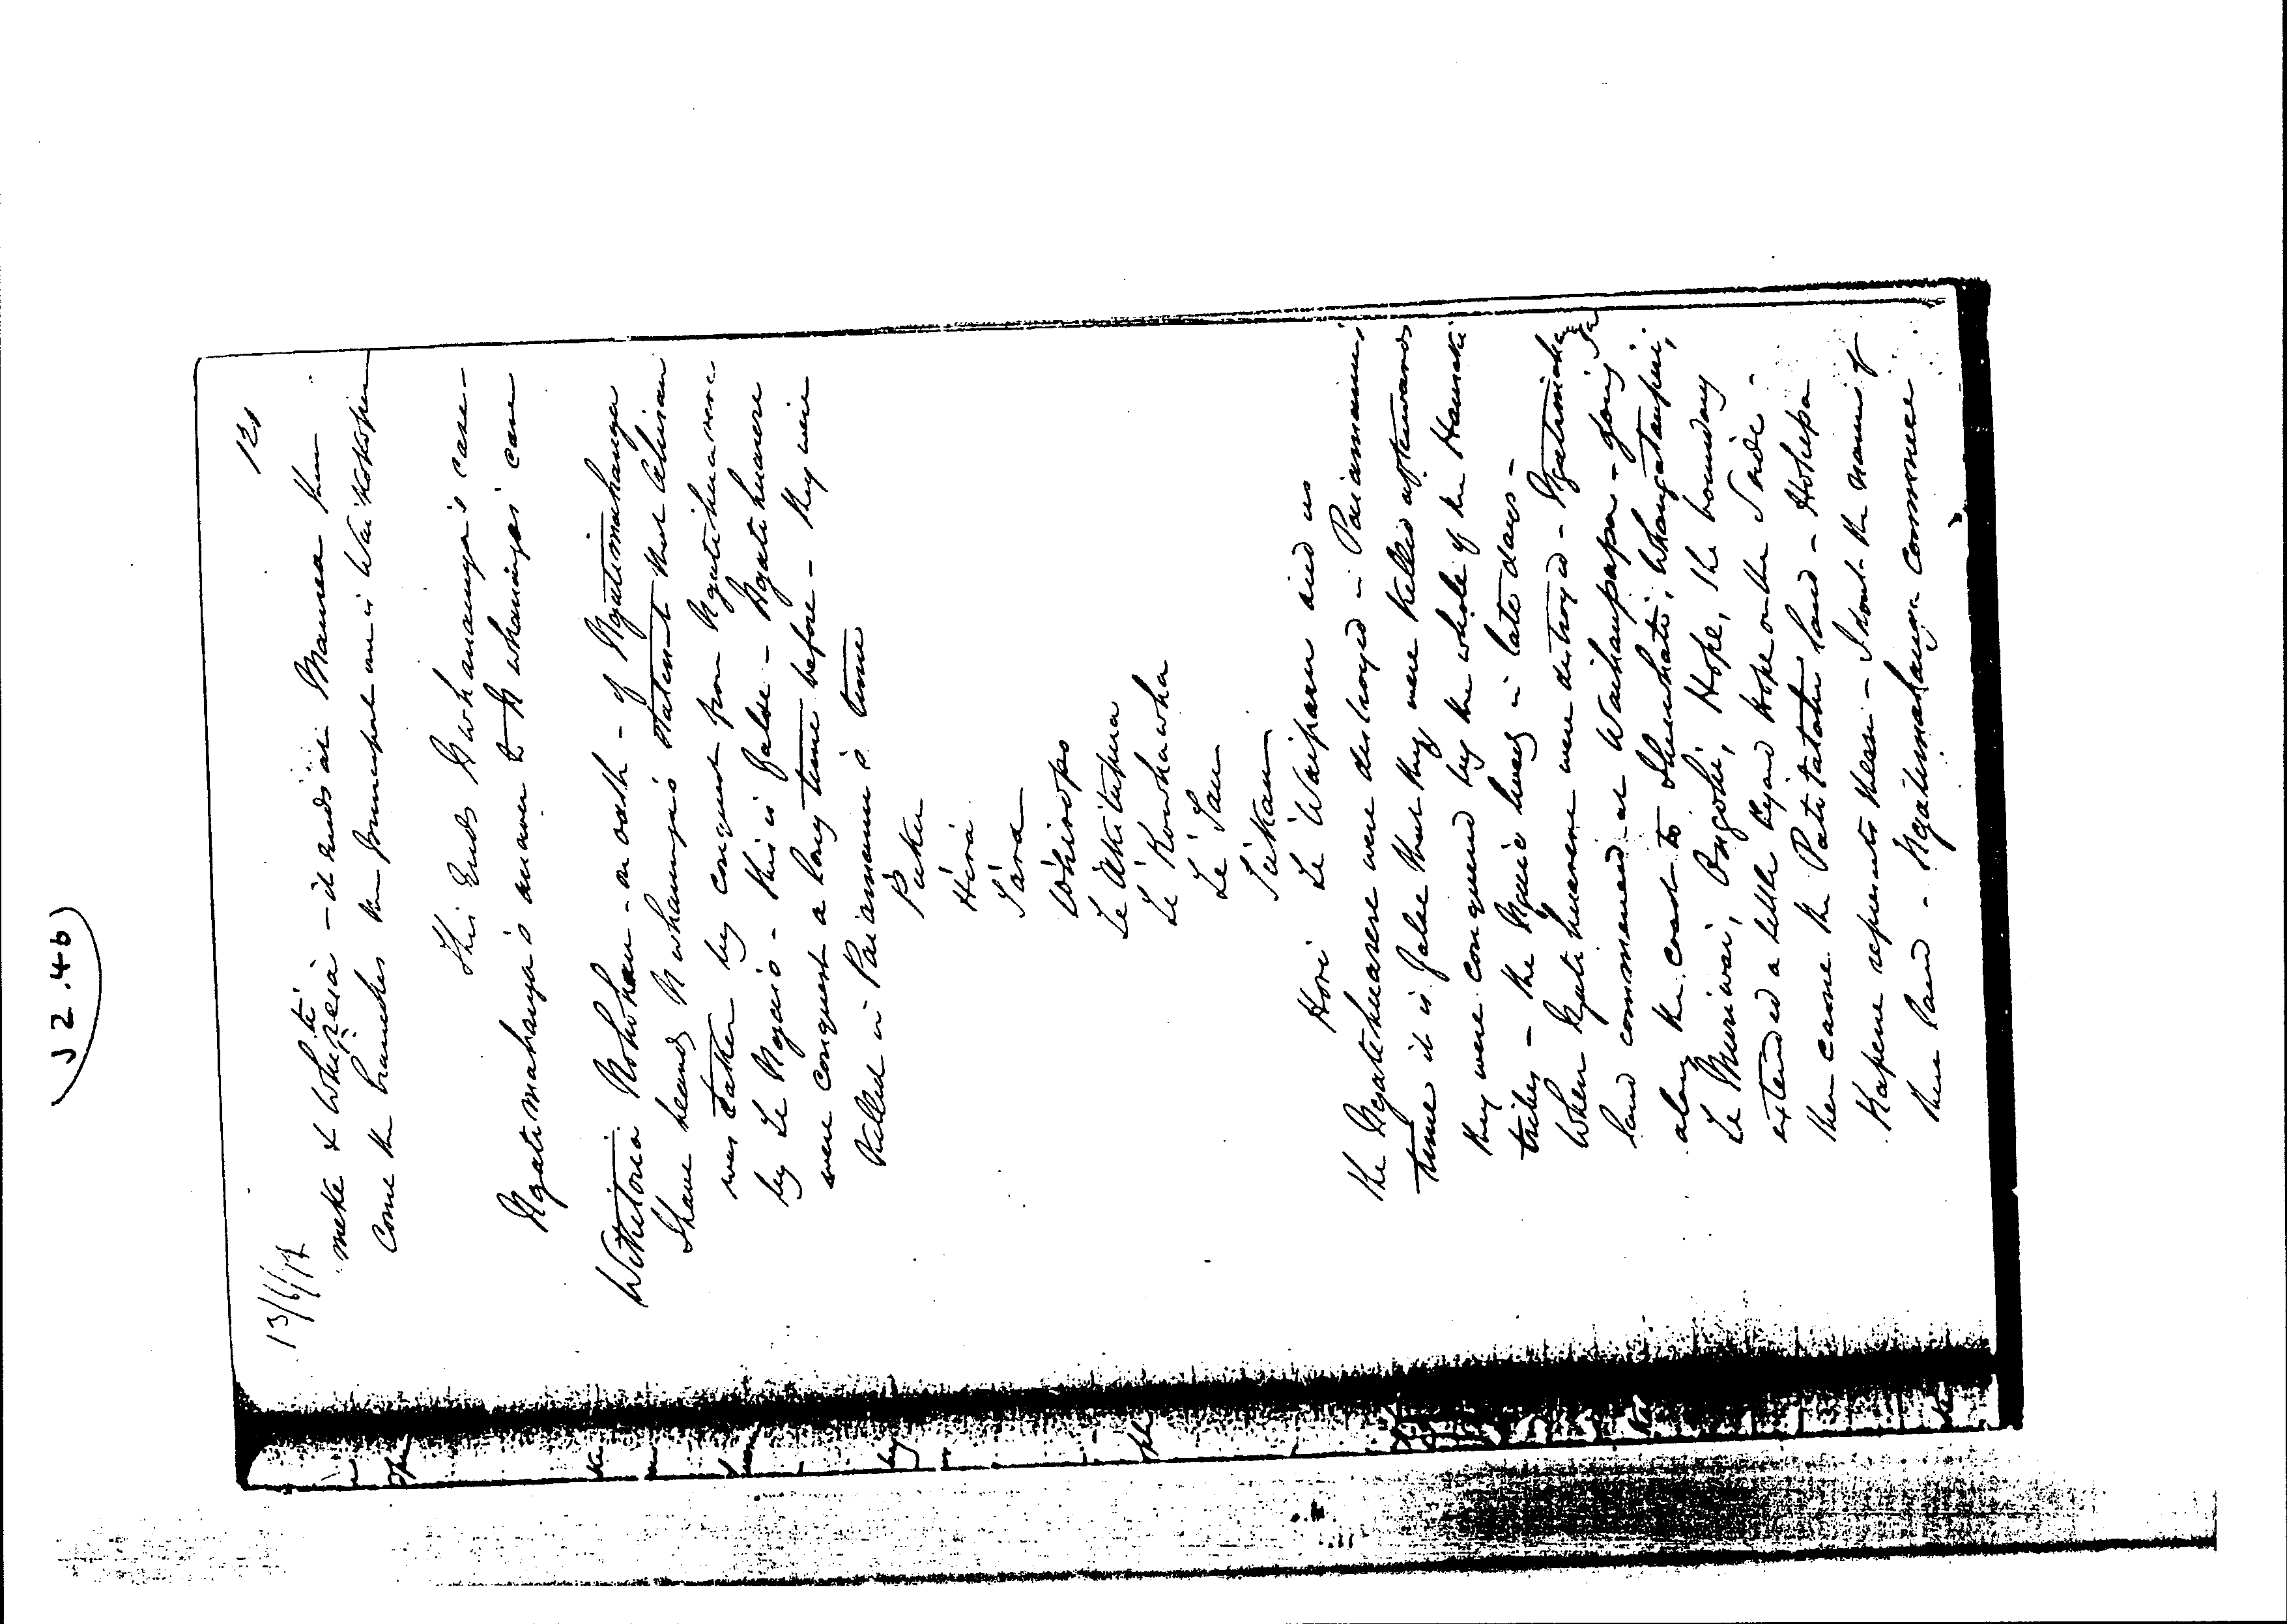 J 2.46
13/6/17
121
meke & Whitireia – it ends at Manuea then
Come the branches the principal one is Wai Kokopu
This Ends Ngwhanaunga's case –
Ngatimaharga's answer to N whanaunga's case
Wititoria – on oath – of Ngatimaharga
I have heard N whanaunga's statement that Ahuahu
was taken by conquest from Ngatihuarere
by Te Ngaio – this is false – Ngatihuarere
were conquest a long time before – they were
Killed in Paiamanu's time
Puku
Hira
Tara
Te Akitupua
Te Kowhawha
Te Tau
Tukau
Hori Te Waiparu and us
the Ngatihuarere were destroyed in Paiamanu's
time it is false that they were killed afterwards
they were conquered by the whole of the Hauraki
tribes – the Ngaio lived in late days –
When Ngatihuarere were destroyed – Ngatimaharga's
land commenced at – going
along the coast to Whangataupiri,
Te Muriwai, Ongohi, Hope, the boundary
extended a little beyond Hope on the side –
then came the Patutatahi land – Hohepa
Kapene represents them – I don't the name of
their land – Ngatimaharga commence